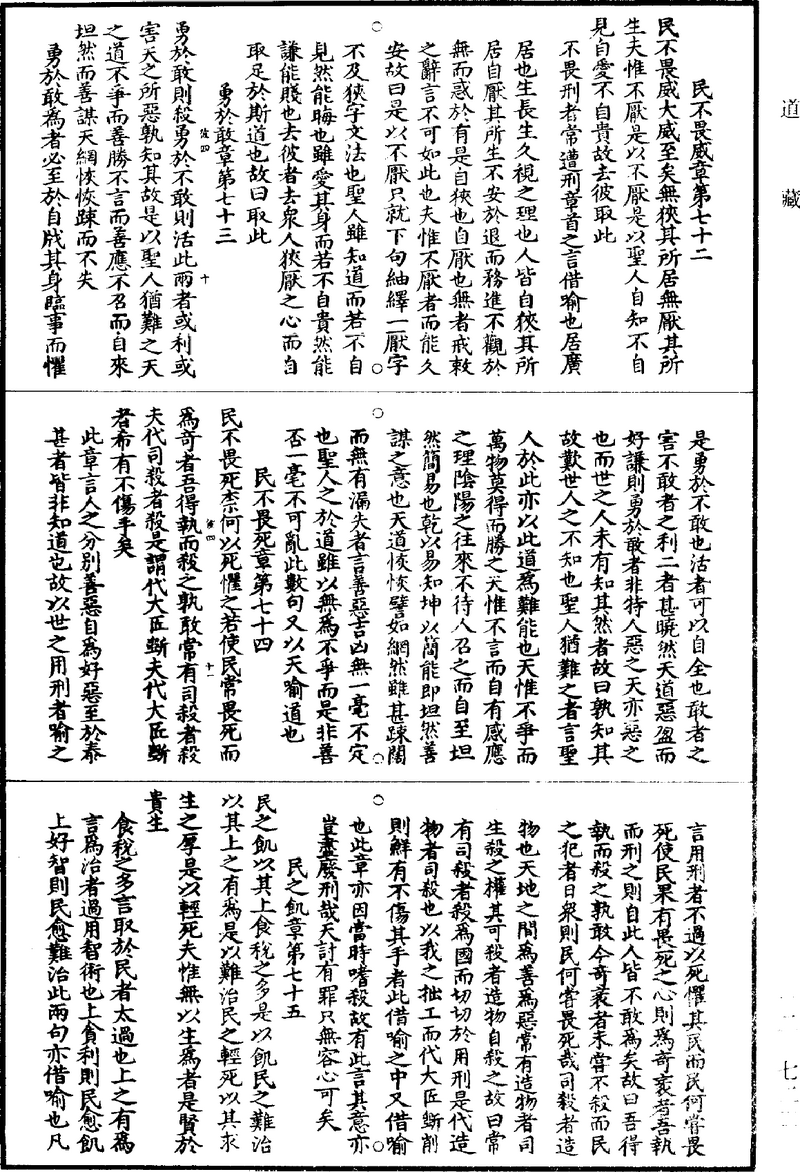 道藏
民不畏威章第七十二
民不畏威大威至矣無狹其所居無厭其所
生夫惟不厭是以不厭是以聖人自知不自
見自愛不自貴故去彼取此
不畏刑者常遭刑章首之言借喻也居廣
居也生長生久視之理也人皆自狹其所
居自厭其所生不安於退而務進不觀於
無而惑於有是自狹也自厭也無者戒敕
之辭言不可如此也夫惟不厭者而能久
安故曰是以不厭只就下句紬繹一厭字
不及狹字文法也聖人雖知道而若不自
見然能晦也雖愛其身而若不自貴然能
謙能賤也去彼者去衆人狹厭之心而自
取足於斯道也故曰取此
勇於敢章第七十三
勇於敢則殺勇於不敢則活此兩者或利或
害天之所惡孰知其故是以聖人猶難之天
之道不爭而善勝不言而善應不召而自來
坦然而善謀天網恢恢踈而不失
勇於敢爲者必至於自戕其身臨事而懼
是勇於不敢也活者可以自全也敢者之
害不敢者之利二者甚曉然天道惡盈而
好謙則勇於敢者非特人惡之天亦惡之
也而世之人未有知其然者故曰孰知其
故歎世人之不知也聖人猶難之者言聖
人於此亦以此道爲難能也天惟不爭而
萬物莫得而勝之天惟不言而自有感應
之理陰陽之往來不待人召之而自至坦
然簡易也乾以易知坤以簡能即坦然善
謀之意也天道恢恢譬如網然雖甚踈闊
而無有漏失者言善惡吉凶無一毫不定
也聖人之於道雖以無爲不爭而是非善
否一毫不可亂此數句又以天喻道也
民不畏死章第七十四
民不畏死柰何以死懼之若使民常畏死而
爲奇者吾得執而殺之孰敢常有司殺者殺
夫代司殺者殺是謂代大匠斲夫代大匠斲
者希有不傷手矣
此章言人之分別善惡自爲好惡至於泰
甚者皆非知道也故以世之用刑者喻之
言用刑者不過以死懼其民而民何嘗畏
死使民果有畏死之心則爲奇衺者吾執
而刑之則自此人皆不敢爲矣故曰吾得
執而殺之孰敢今奇衺者未嘗不殺而民
之犯者日衆則民何嘗畏死哉司殺者造
物也天地之間爲善爲惡常有造物者司
生殺之權其可殺者造物自殺之故曰常
有司殺者殺爲國而切切於用刑是代造
物者司殺也以我之拙工而代大匠斲削
則鮮有不傷其手者此借喻之中又借喻
也此章亦因當時嗜殺故有此言其意亦
豈盡廢刑哉天討有罪只無容心可矣
民之飢章第七十五
民之飢以其上食稅之多是以飢民之難治
以其上之有爲是以難治民之輕死以其求
生之厚是以輕死夫惟無以生爲者是賢於
貴生
食稅之多言取於民者太過也上之有爲
言爲治者過用智術也上貪利則民愈飢
上好智則民愈難治此兩句亦借喻也凡